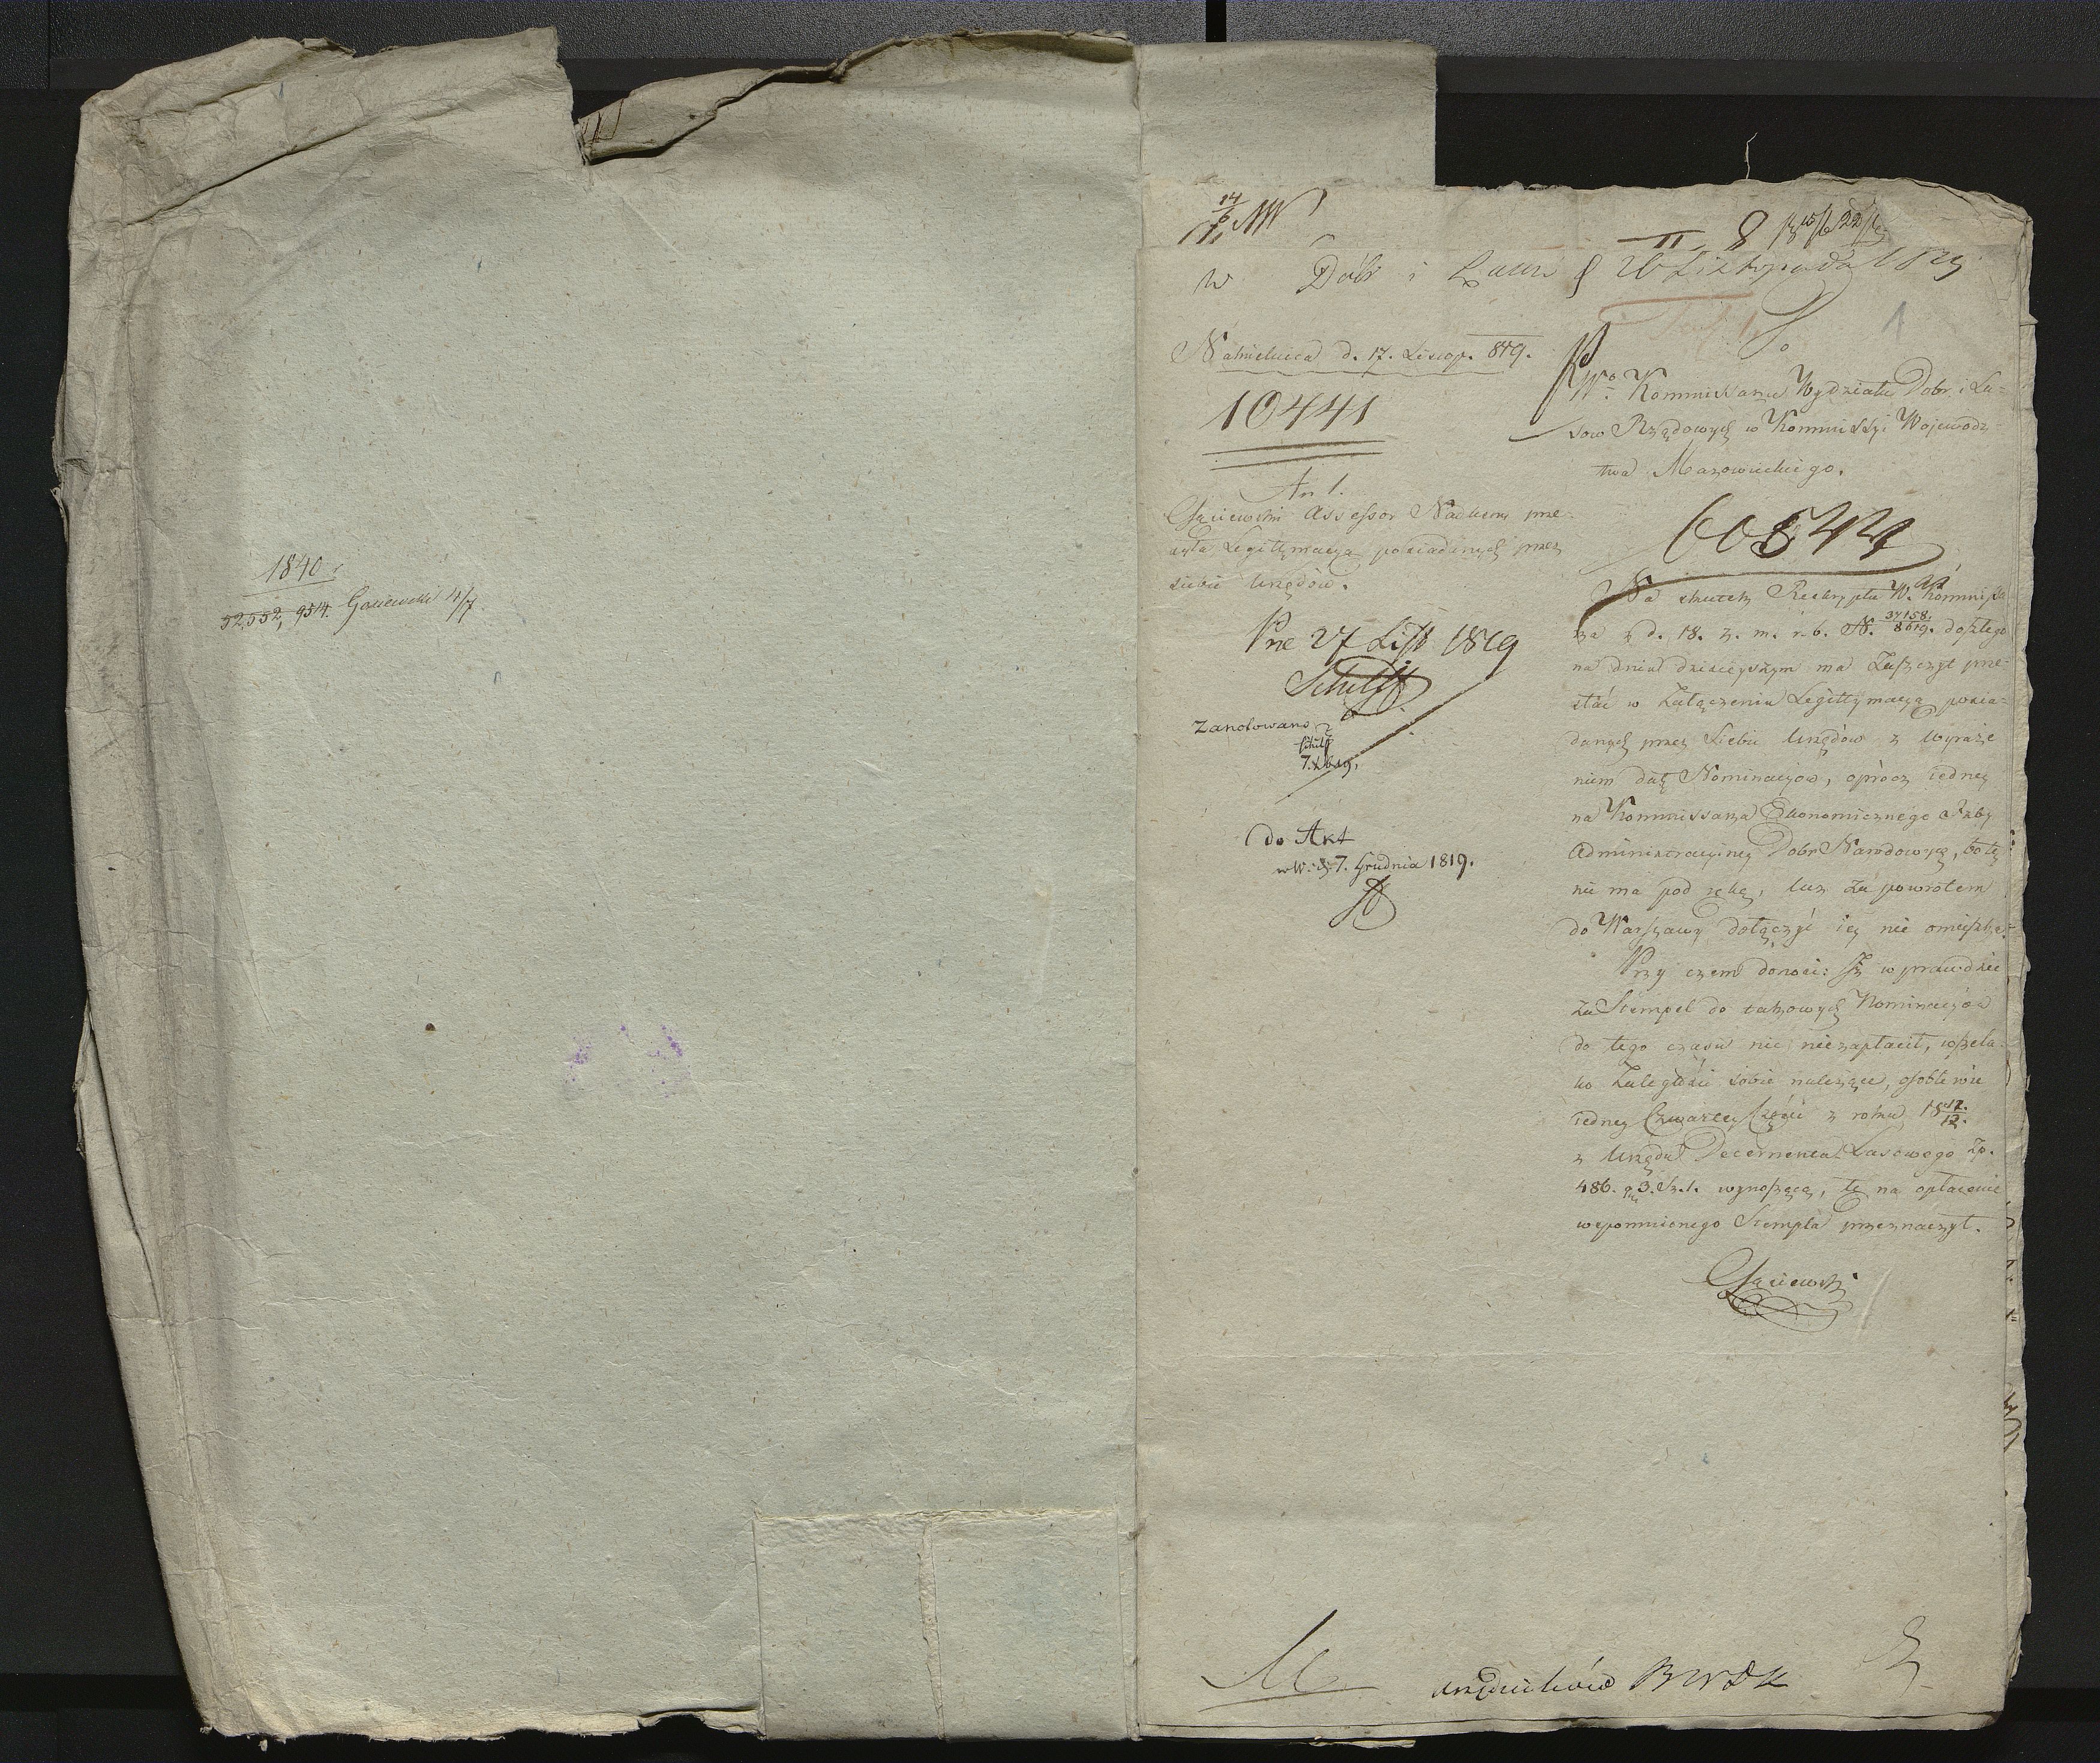 1840.
52,552, 9514. Gąsiewski 4/7.
14/6
II 8
W Dobr i Lasów 26 Listopada 1829
1
Nasielnica d. 17. Listop. 819.
10441
An 1.
Gąsiewski Assessor Nadleśny prze-
syła Legitymacyą posiadanych przez
siebie Urzędów.
Pre 27 List 1819
Schultz
Zanotowano
Schultz
7. Xb 19.
do Akt
w W. d. 7. Grudnia 1819.
Do
JWo. Kommissarza Wydziału Dobr i La-
sow Rządowych w Kommissyi Wojewodz-
twa Mazowieckiego.
60844
Na skutek Reskryptu W. Kommissa
rza z d. 18. z. m. r. b. N. 37158/8619. doszłego
na dniu dzisieyszym ma Zaszczyt prze-
słać w Załączeniu Legittymacyą posia-
danych przez Siebie Urzędów z wyraże
niem daty Nominacyow, oprócz iedney
na Kommissarza Ekonomicznego Izby
Administracyiney Dobr Narodowych, bo tey
nie ma pod ręką, lecz za powrotem
do Warszawy dołączyć iey nie omieszka.
Przy czem donosi: Iż wprawdzie
za Stempel do takowych Nominacyow
do tego czasu nic niezapłacił, wszela-
ko Zaległości sobie należące, osobliwie
iedney Czwartey Części z roku 18 12/13.
z Urzędu Decernenta Lasowego Zp.
486. gr 3. Sz. 1. wynoszącą, tę na opłacenie
wspomnionego Stempla przeznaczył.
Gąsiewski
M
urzędników BWDK